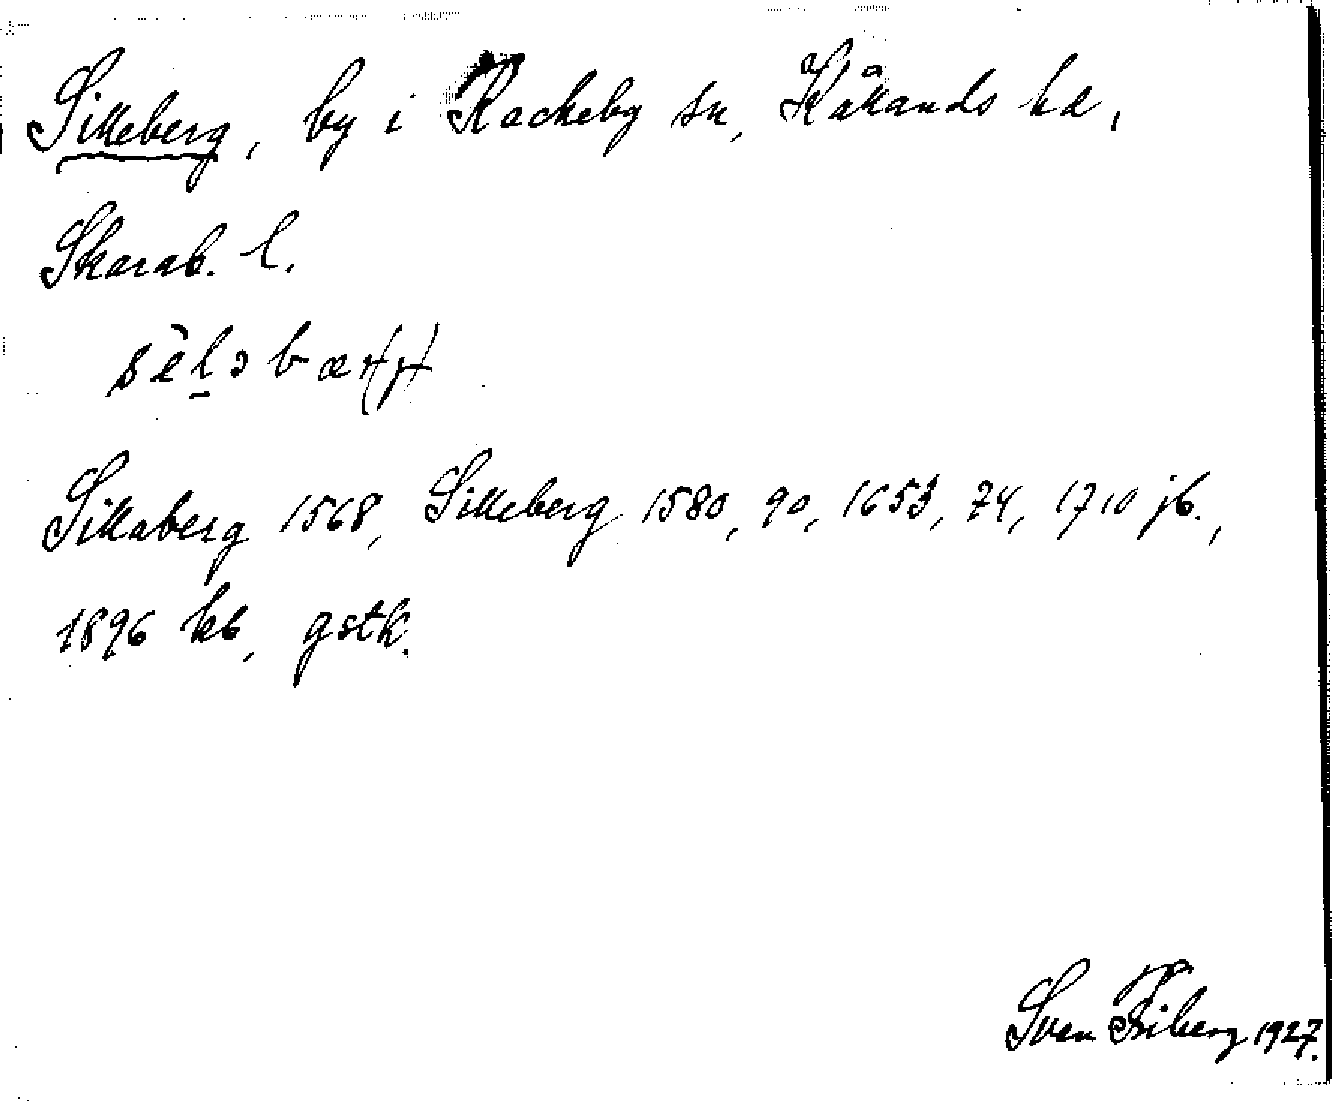 Silleberg, by i Rackeby sn, Kållands hd,
Skarab. l.
Sillaberg 1568, Silleberg 1580, 90, 1653, 74, 1710 jb.,
1896 kb, gstk.
Sven Friberg 1927.